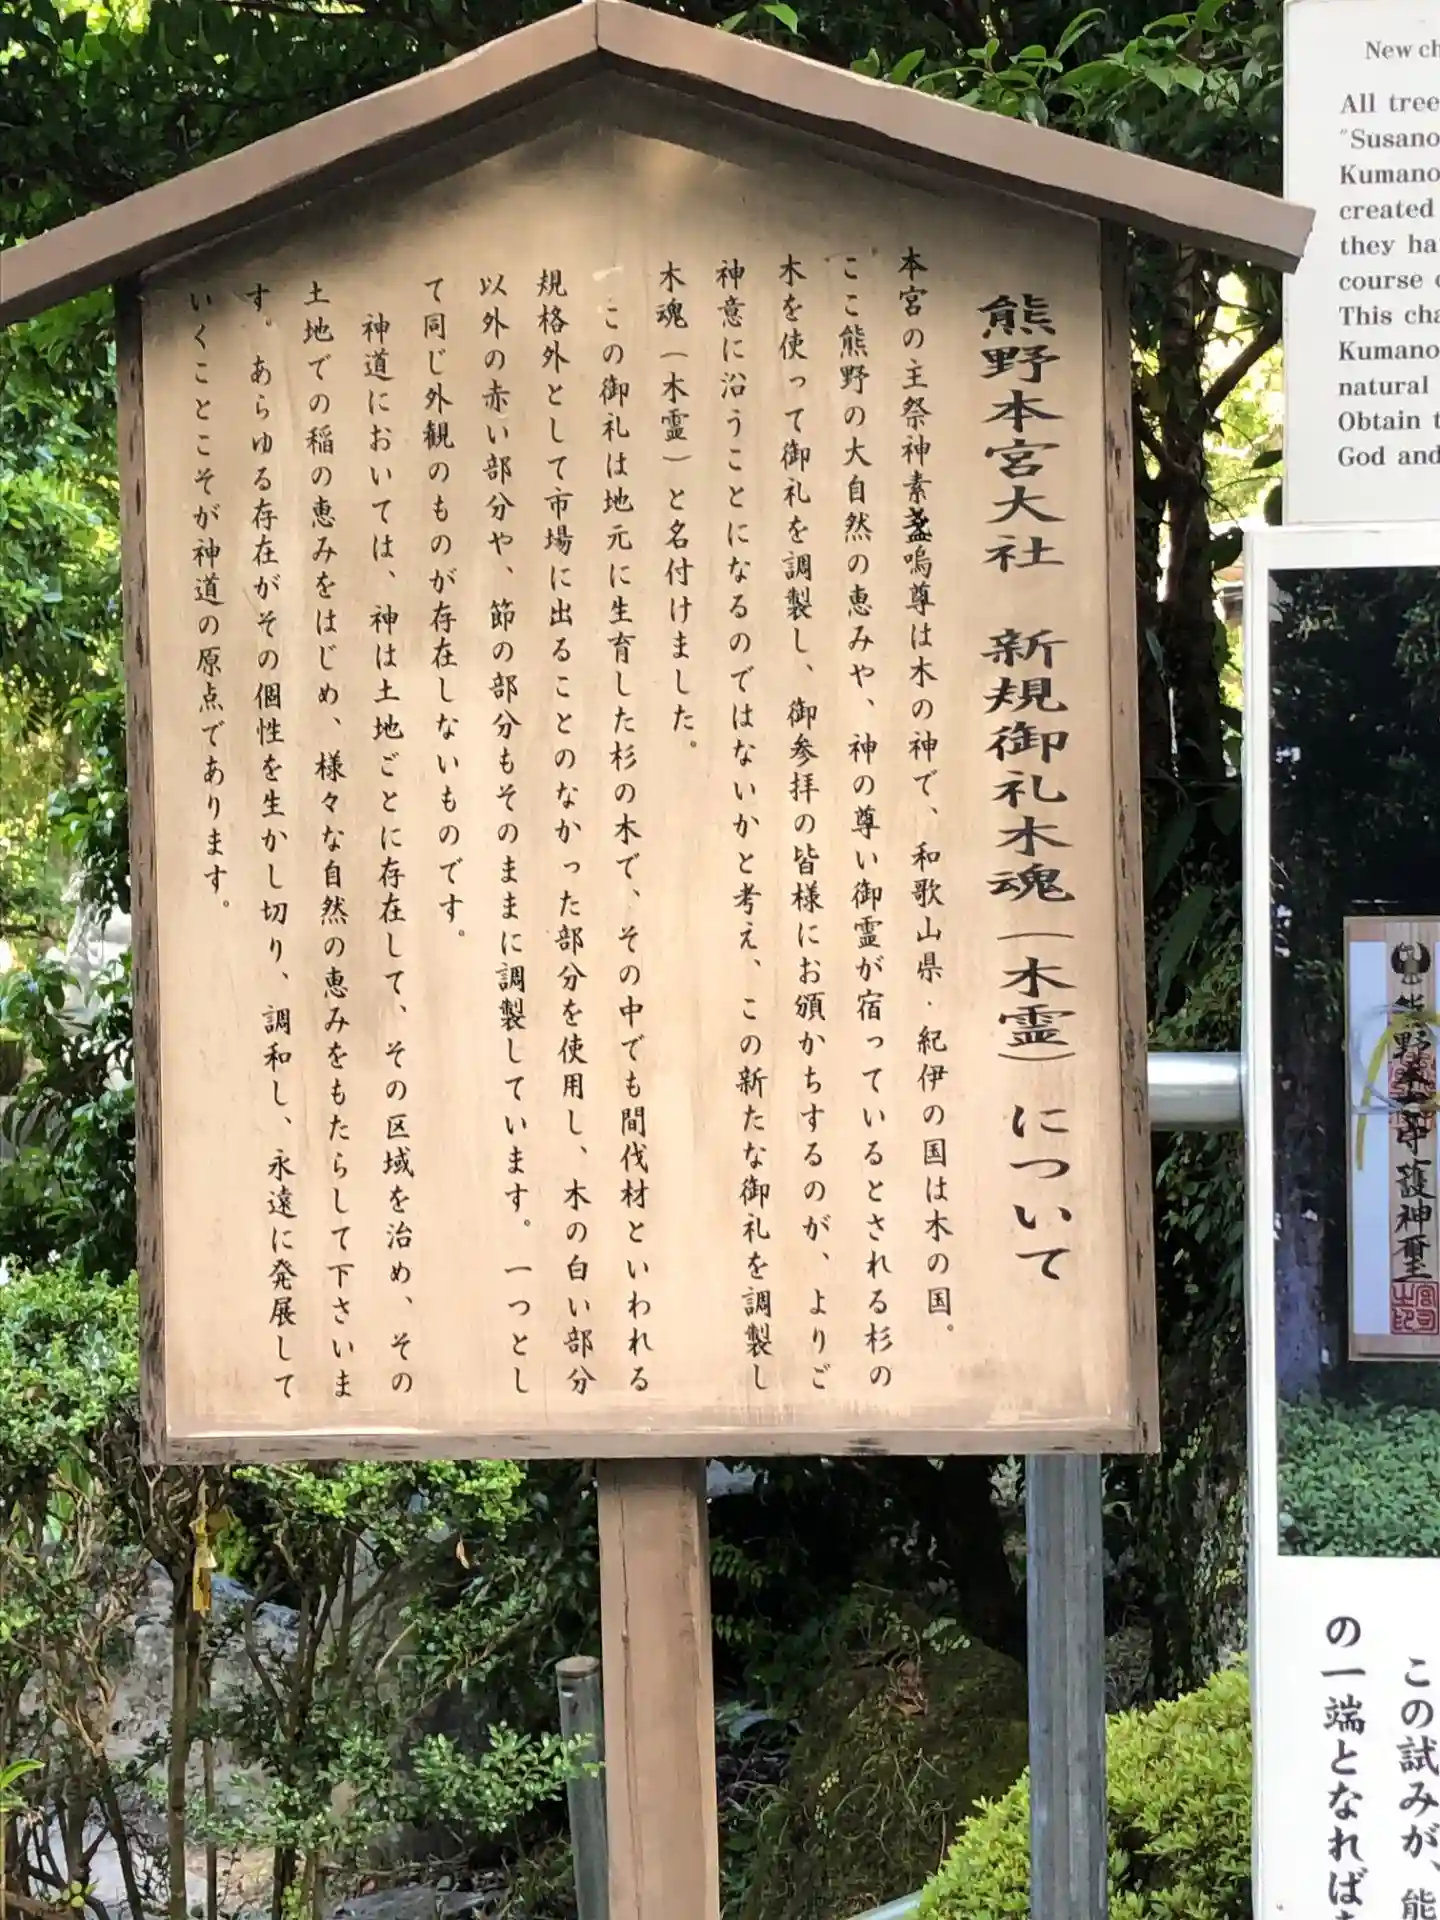 熊野本宮大社 新規御礼木魂(木霊)について
本宮の主祭神素盞嗚尊は木の神で、和歌山県・紀伊の国は木の国。
ここ熊野の大自然の恵みや、神の尊い御霊が宿っているとされる杉の
木を使って御礼を調製し、御参拝の皆様にお頒かちするのが、よりご
神意に沿うことになるのではないかと考え、この新たな御礼を調製し
木魂(木霊)と名付けました。
この御礼は地元に生育した杉の木で、その中でも間伐材といわれる
規格外として市場に出ることのなかった部分を使用し、木の白い部分
以外の赤い部分や、節の部分もそのままに調製しています。一つとし
て同じ外観のものが存在しないものです。
神道においては、神は土地ごとに存在して、その区域を治め、その
土地での稲の恵みをはじめ、様々な自然の恵みをもたらして下さいま
す。あらゆる存在がその個性を生かし切り、調和し、永遠に発展して
いくことこそが神道の原点であります。
New ch
All tree
"Susano
Kumano
created
they ha
course
This cha
Kumano
natural
Obtain t
God and
熊野本宮
守護神璽
この試みが、能
の一端となれば